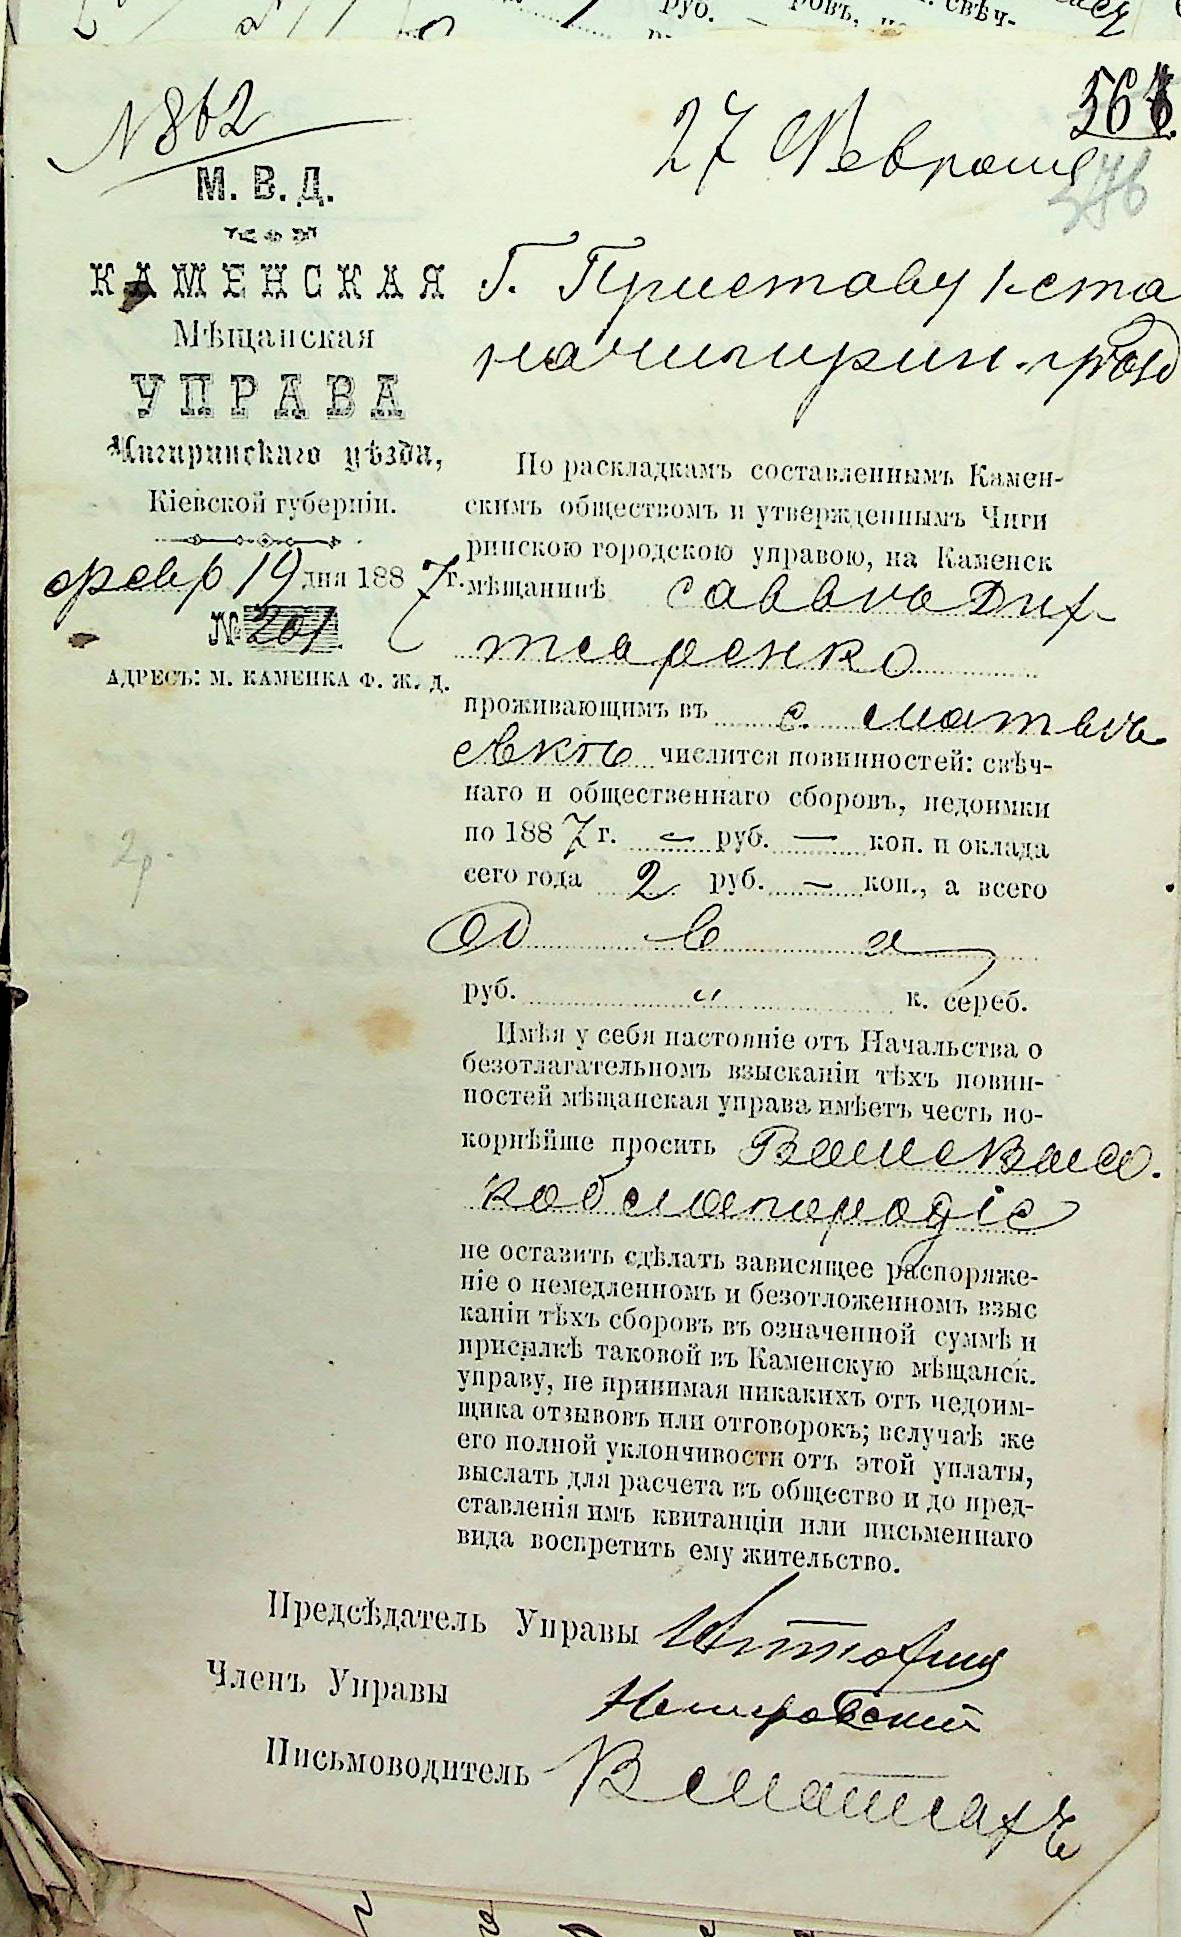 руб.
свѣч-
N 862
27 Февраля
М. В. Д.
КАМЕНСКАЯ
Мѣщанская
УПРАВА
Чигиринскаго уѣзда,
Кіевской губерніи.
февр 19 дня 1887 г.
№ 201.
АДРЕСЪ: М. КАМЕНКА Ф. Ж. Д.
2р.
Г. Приставу 1 ста
По раскладкамъ составленнымъ Камен-
скимъ обществомъ и утвержденнымъ Чиги
ринскою городскою управою, на Каменск
мѣщанинѣ Савва
проживающимъ въ с. Матвѣ
евкѣ числится повинностей: свѣч-
наго и общественнаго сборовъ, недоимки
по 1887 г. — руб. — коп. и оклада
сего года 2 руб. — коп., а всего
Два
руб. " к. сереб.
Имѣя у себя настояніе отъ Начальства о
безотлагательномъ взысканіи тѣхъ повин-
ностей мѣщанская управа имѣетъ честь по-
корнѣйше просить Ваше Высо.
коблагородіе
не оставить сдѣлать зависящее распоряже-
ніе о немедленномъ и безотложенномъ взыс
каніи тѣхъ сборовъ въ означенной суммѣ и
присылкѣ таковой въ Каменскую мѣщанск.
управу, не принимая никакихъ отъ недоим-
щика отзывовъ или отговорокъ; вслучаѣ же
его полной уклончивости отъ этой уплаты,
выслать для расчета въ общество и до пред-
ставленія имъ квитанціи или письменнаго
вида воспретить ему жительство.
Предсѣдатель Управы
Членъ Управы
Письмоводитель В